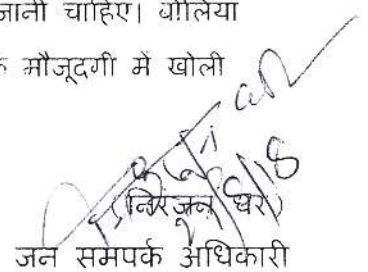 जानी चाहिए। बोलिया
मौजूदगी में खोली
(निरजन धर)
जन समपर्क अधिकारी